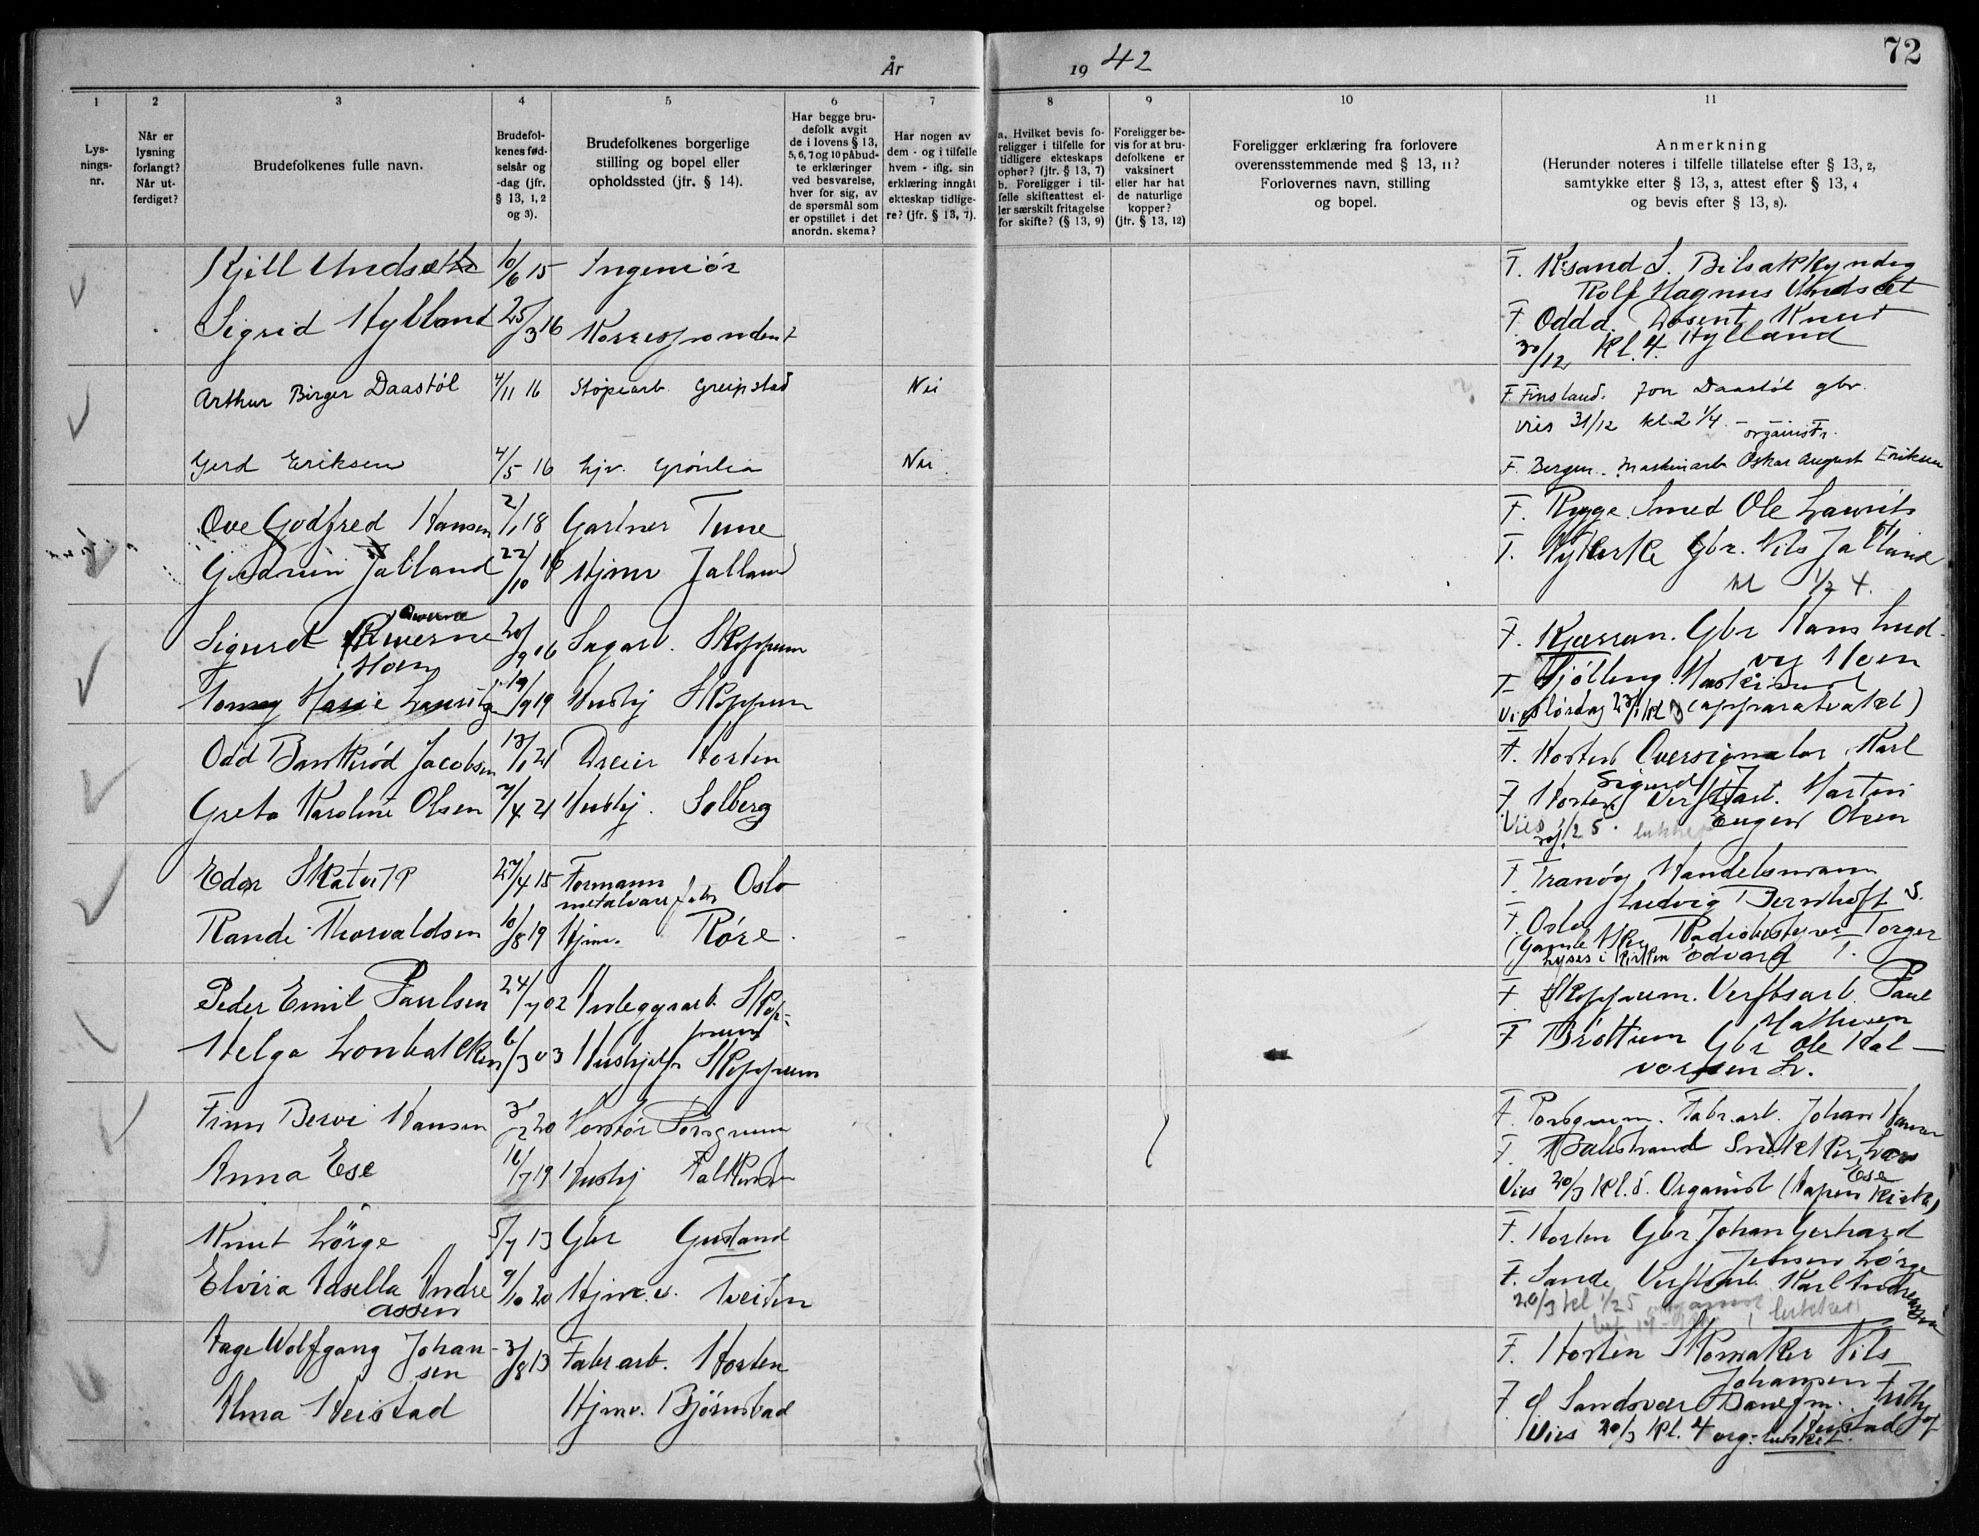 År 19 42
72
1 2 3 4 5 6 7 8 9 10 11
Lys-
nings-
nr.
Når er
lysning
forlangt?
Når ut-
ferdiget?
Brudefolkenes fulle navn.
Brudefol-
kenes fød-
selsår og
-dag (jfr.
§ 13, 1, 2
og 3).
Brudefolkenes borgerlige
stilling og bopel eller
opholdssted (jfr. § 14).
Har begge bru-
defolk avgit
de i lovens § 13,
5, 6, 7 og 10 påbud-
te erklæringer
ved besvarelse,
hver for sig, av
de spørsmål som
er opstillet i det
anordn. skema?
Har nogen av
dem - og i tilfelle
hvem - iflg. sin
erklæring inngått
ekteskap tidlige-
re? (jfr. § 13, 7).
a. Hvilket bevis fo-
religger i tilfelle for
tidligere ekteskaps
ophør? (jfr. § 13, 7)
b. Foreligger i til-
felle skifteattest el-
ler særskilt fritagelse
for skifte? (§ 13, 9)
Foreligger be-
vis for at bru-
defolkene er
vaksinert
eller har hat
de naturlige
kopper?
(jfr. § 13, 12)
Foreligger erklæring fra forlovere
overensstemmende med § 13, 11?
Forlovernes navn, stilling
og bopel.
Anmerkning
(Herunder noteres i tilfelle tillatelse efter § 13, 2,
samtykke efter § 13, 3, attest efter § 13, 4
og bevis efter § 13, 8).
Kjell Undsæt 10/6 15 Ingeniør F. Kr.sand S. Bilsakkyndig
Rolf Magnus Undsæt
Sigrid Hylland 25/3 16 Korrespondent F. Odda. Dosent Knut
30/12 kl. 4. Hylland
Arthur Birger Daastøl 4/11 16 Støpearb Greipstad Nei F. Finsland. Jon Daastøl gbr.
vies 31/12 kl. 2 1/4. -
Gerd Eriksen 4/5 16 hjv. Grønlia Nei F. Bergen. Maskinarb Oskar August Eriksen
Ove Godfred Hansen 2/1 18 Gartner Tune F. Rygge. Smed Ole Laurits H
Gudrun Jalland 22/10 16 Hjmv Jalland F. Nykirke Gbr. Nils Jalland
kl 1/2 4.
Sigurd Kværne 20/9 16 Sagarb. Skoppum F. Kjærran. Gbr Hans Lud-
Moen vig Moen
Marie Lauritzen 19/9 19 Hushj Skoppum F. Tjølling.
Vies lørdag 23/1 kl 3 (apparatvakt)
Odd Jacobsen 13/1 21 Dreier Horten F. Horten Oversignalør Karl
Sigurd J
Greta Karoline Olsen 7/4 21 Hushj. Solberg F. Horten Verftsarb. Martin
Vies 1/2 5. lukket Eugen Olsen
Skatvik 27/4 15 Formann Oslo F. Tranøy Handelsmann
metalvarefabr Ludvig Bernhoft S.
Rande Thorvaldsen 10/8 19 Hjmv. Røre. F. Oslo Torger
lyses i kirken Edvard T.
Peder Emil Paulsen 24/7 02 Anleggsarb. Skop- F. Skoppum. Verftsarb. Paul
pum Mathisen
Helga Lonbakken 6/3 03 Hushjelp Skoppum F Brøttum Gbr Ole Hal-
vorsen L.
Finn Hansen 3/2 20 Kontor Porsgrunn F. Porsgrunn. Fabr.arb. Johan Hansen
Anna Ese 16/7 19 Hushj F. Balestrand Snekker Lars
Ese
Vies 20/3 kl. 5. Organist kirke)
Knut Lørge 5/7 13 Gbr F. Horten Gbr. Johan Gerhard
Jensen Lørge
Elvira Andre 9/10 20 Hjmv. Tveiten F. Sande Verftsarb. Karl Andreassen
assen 20/3 kl 1/2 5 lukket
Aage Wolfgang Johan- 3/8 13 Fabr arb. Horten F. Horten Skomaker Nils
sen Johansen
Alma Heistad Hjmv. Bjørnstad F. Sandsvær Banefm. Frithjof
Vies 20/3 kl. 4 org. - lukket. Heistad